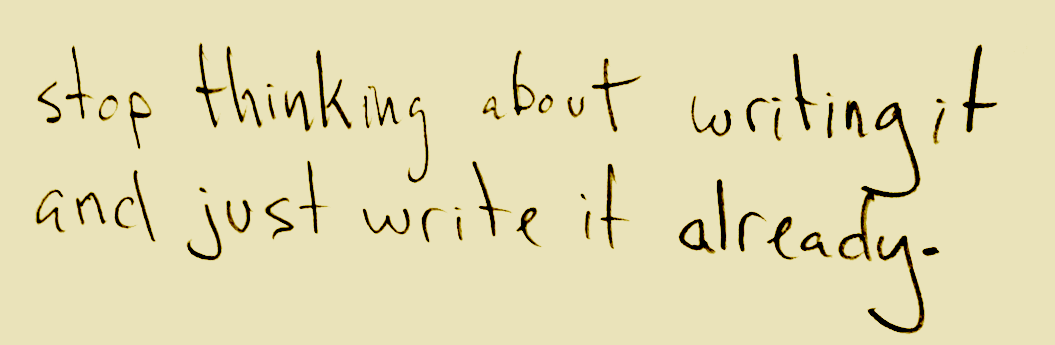 stop thinking about writing it
and just write it already.